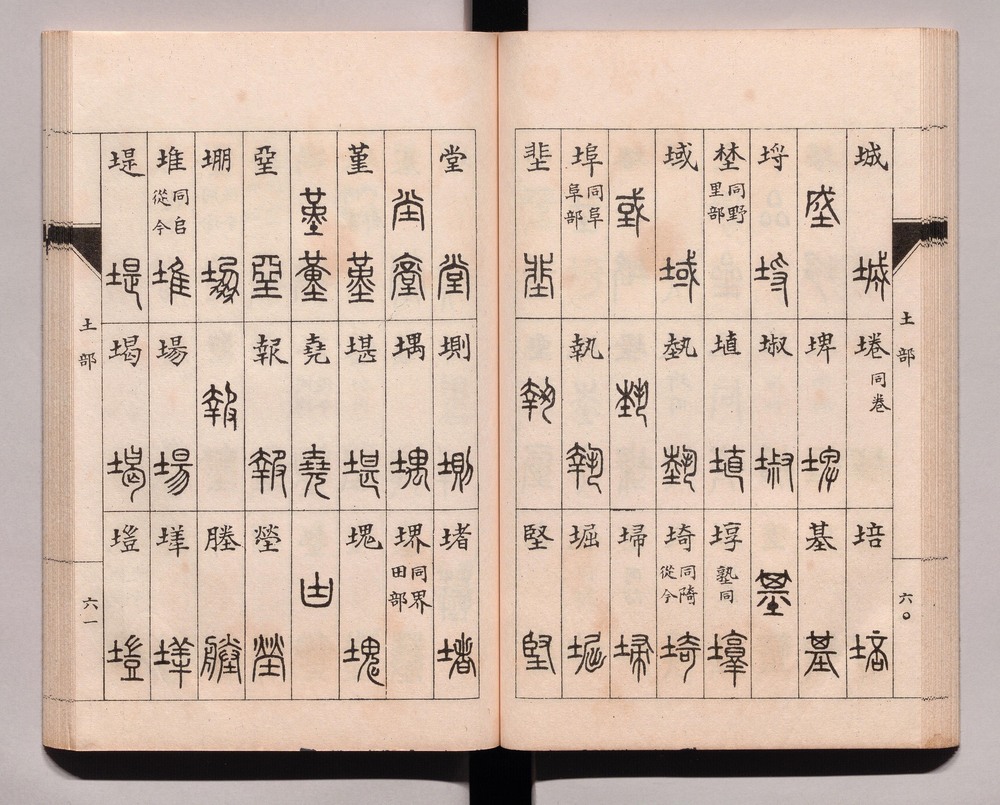 土部
六〇
城 城
城
埒 埒
埜 同野里部
域 域
或
埠 同阜阜部
埢 同卷
埤 埤
埱 埱
埴 埴
埶 埶
埶
執 執
執
培 培
基 基
基
埻 塾同 
埼 從今 埼
埽 埽
堀 堀
堅 堅
堂 堂
坣
堇 堇
堇 堇
堊 堊
堋 堋
堆 同𠂤從今 堆
堤 堤
堣 堣
堪 堪
堯 堯
報 報
報
場 場
堨 堨
堵 堵
堺 同界田部
塊 塊
凷
塋 塋
塍 塍
塏 塏
土部
六一